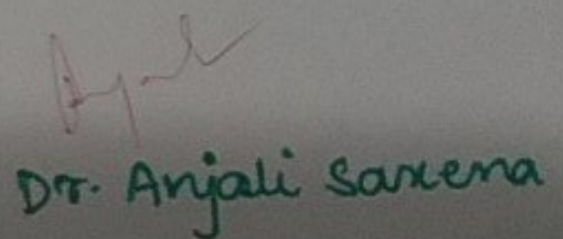 Dr. Anjali Saxena